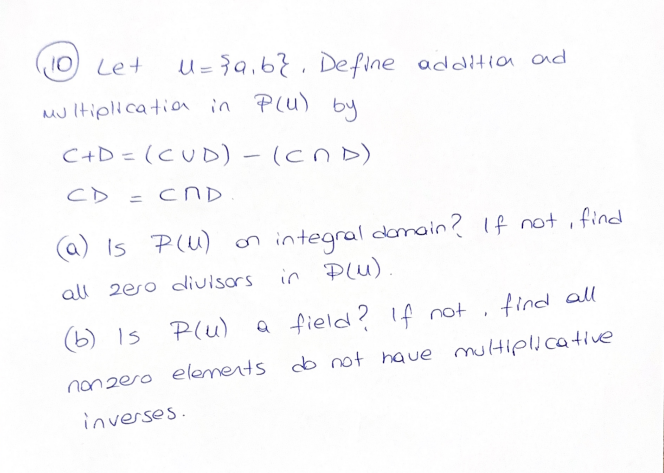 10 Let U={a,b}. Define addition and
multiplication in P(U) by
C+D = (C∪D) - (C∩D)
CD = C∩D.
(a) Is P(U) an integral domain? If not, find
all zero divisors in P(U).
(b) Is P(U) a field? If not, find all
nonzero elements do not have multiplicative
inverses.